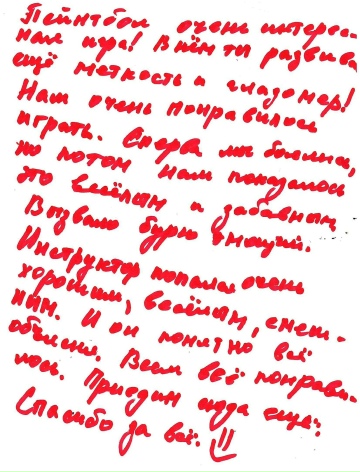 Пейнтбол очень интерес-
ная игра! В нём ты развив
ещё меткость и глазомер!
Нам очень понравилось
играть. Сперва мы боялись,
но потом нам показалось
это весёлым и забавным.
Вызвало бурю эмоций.
Инструктор попался очень
хорошим, весёлым, смеш-
ным. И он понятно всё
объяснил. Всем всё понрави-
лось. Приедим сюда ещё!
Спасибо за всё!!